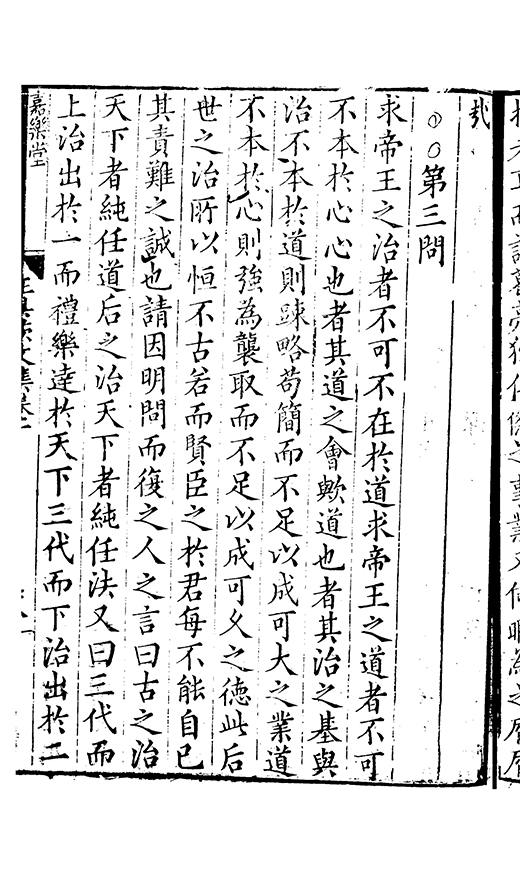 哉
○○第三問
求帝王之治者不可不在於道求帝王之道者不可
不本於心心也者其道之會歟道也者其治之基與
治不本於道則踈略苟簡而不足以成可大之業道
不本於心則強為襲取而不足以成可久之德此后
世之治所以恒不古若而賢臣之於君每不能自已
其責難之誠也請因明問而復之人之言曰古之治
天下者純任道后之治天下者純任法又曰三代而
上治出於一而禮樂達於天下三代而下治出於二
嘉樂堂